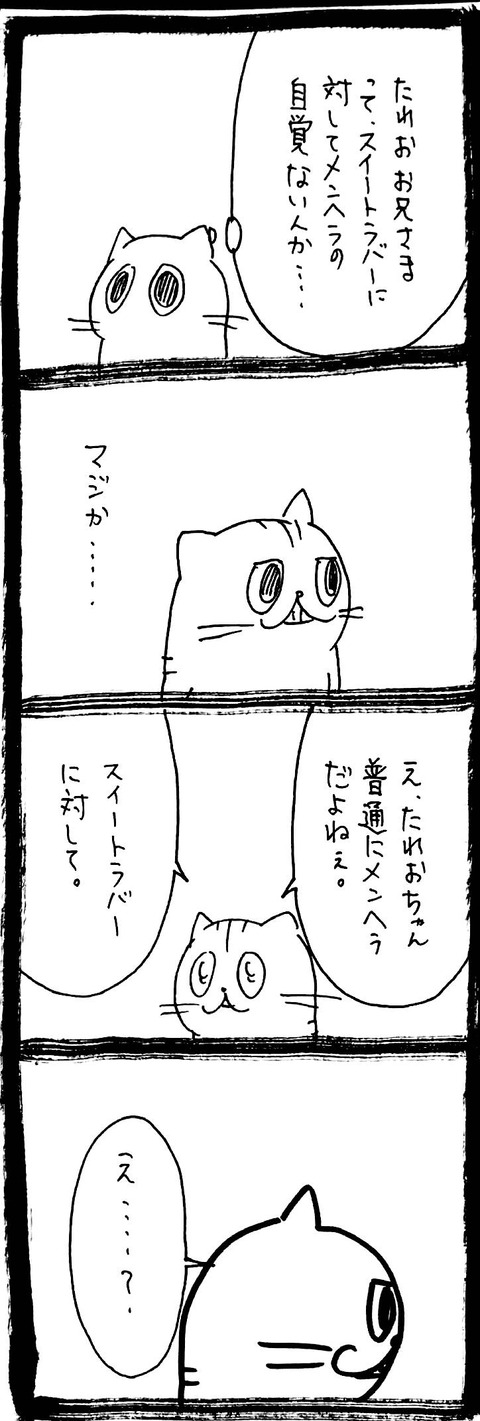 たれおお兄さま
って、スイートラバーに
対してメンヘラの
自覚ない人か…．
マジか……．
え、たれおちゃん
普通にメンヘラ
だよねぇ。
スイートラバー
に対して。
え……？．